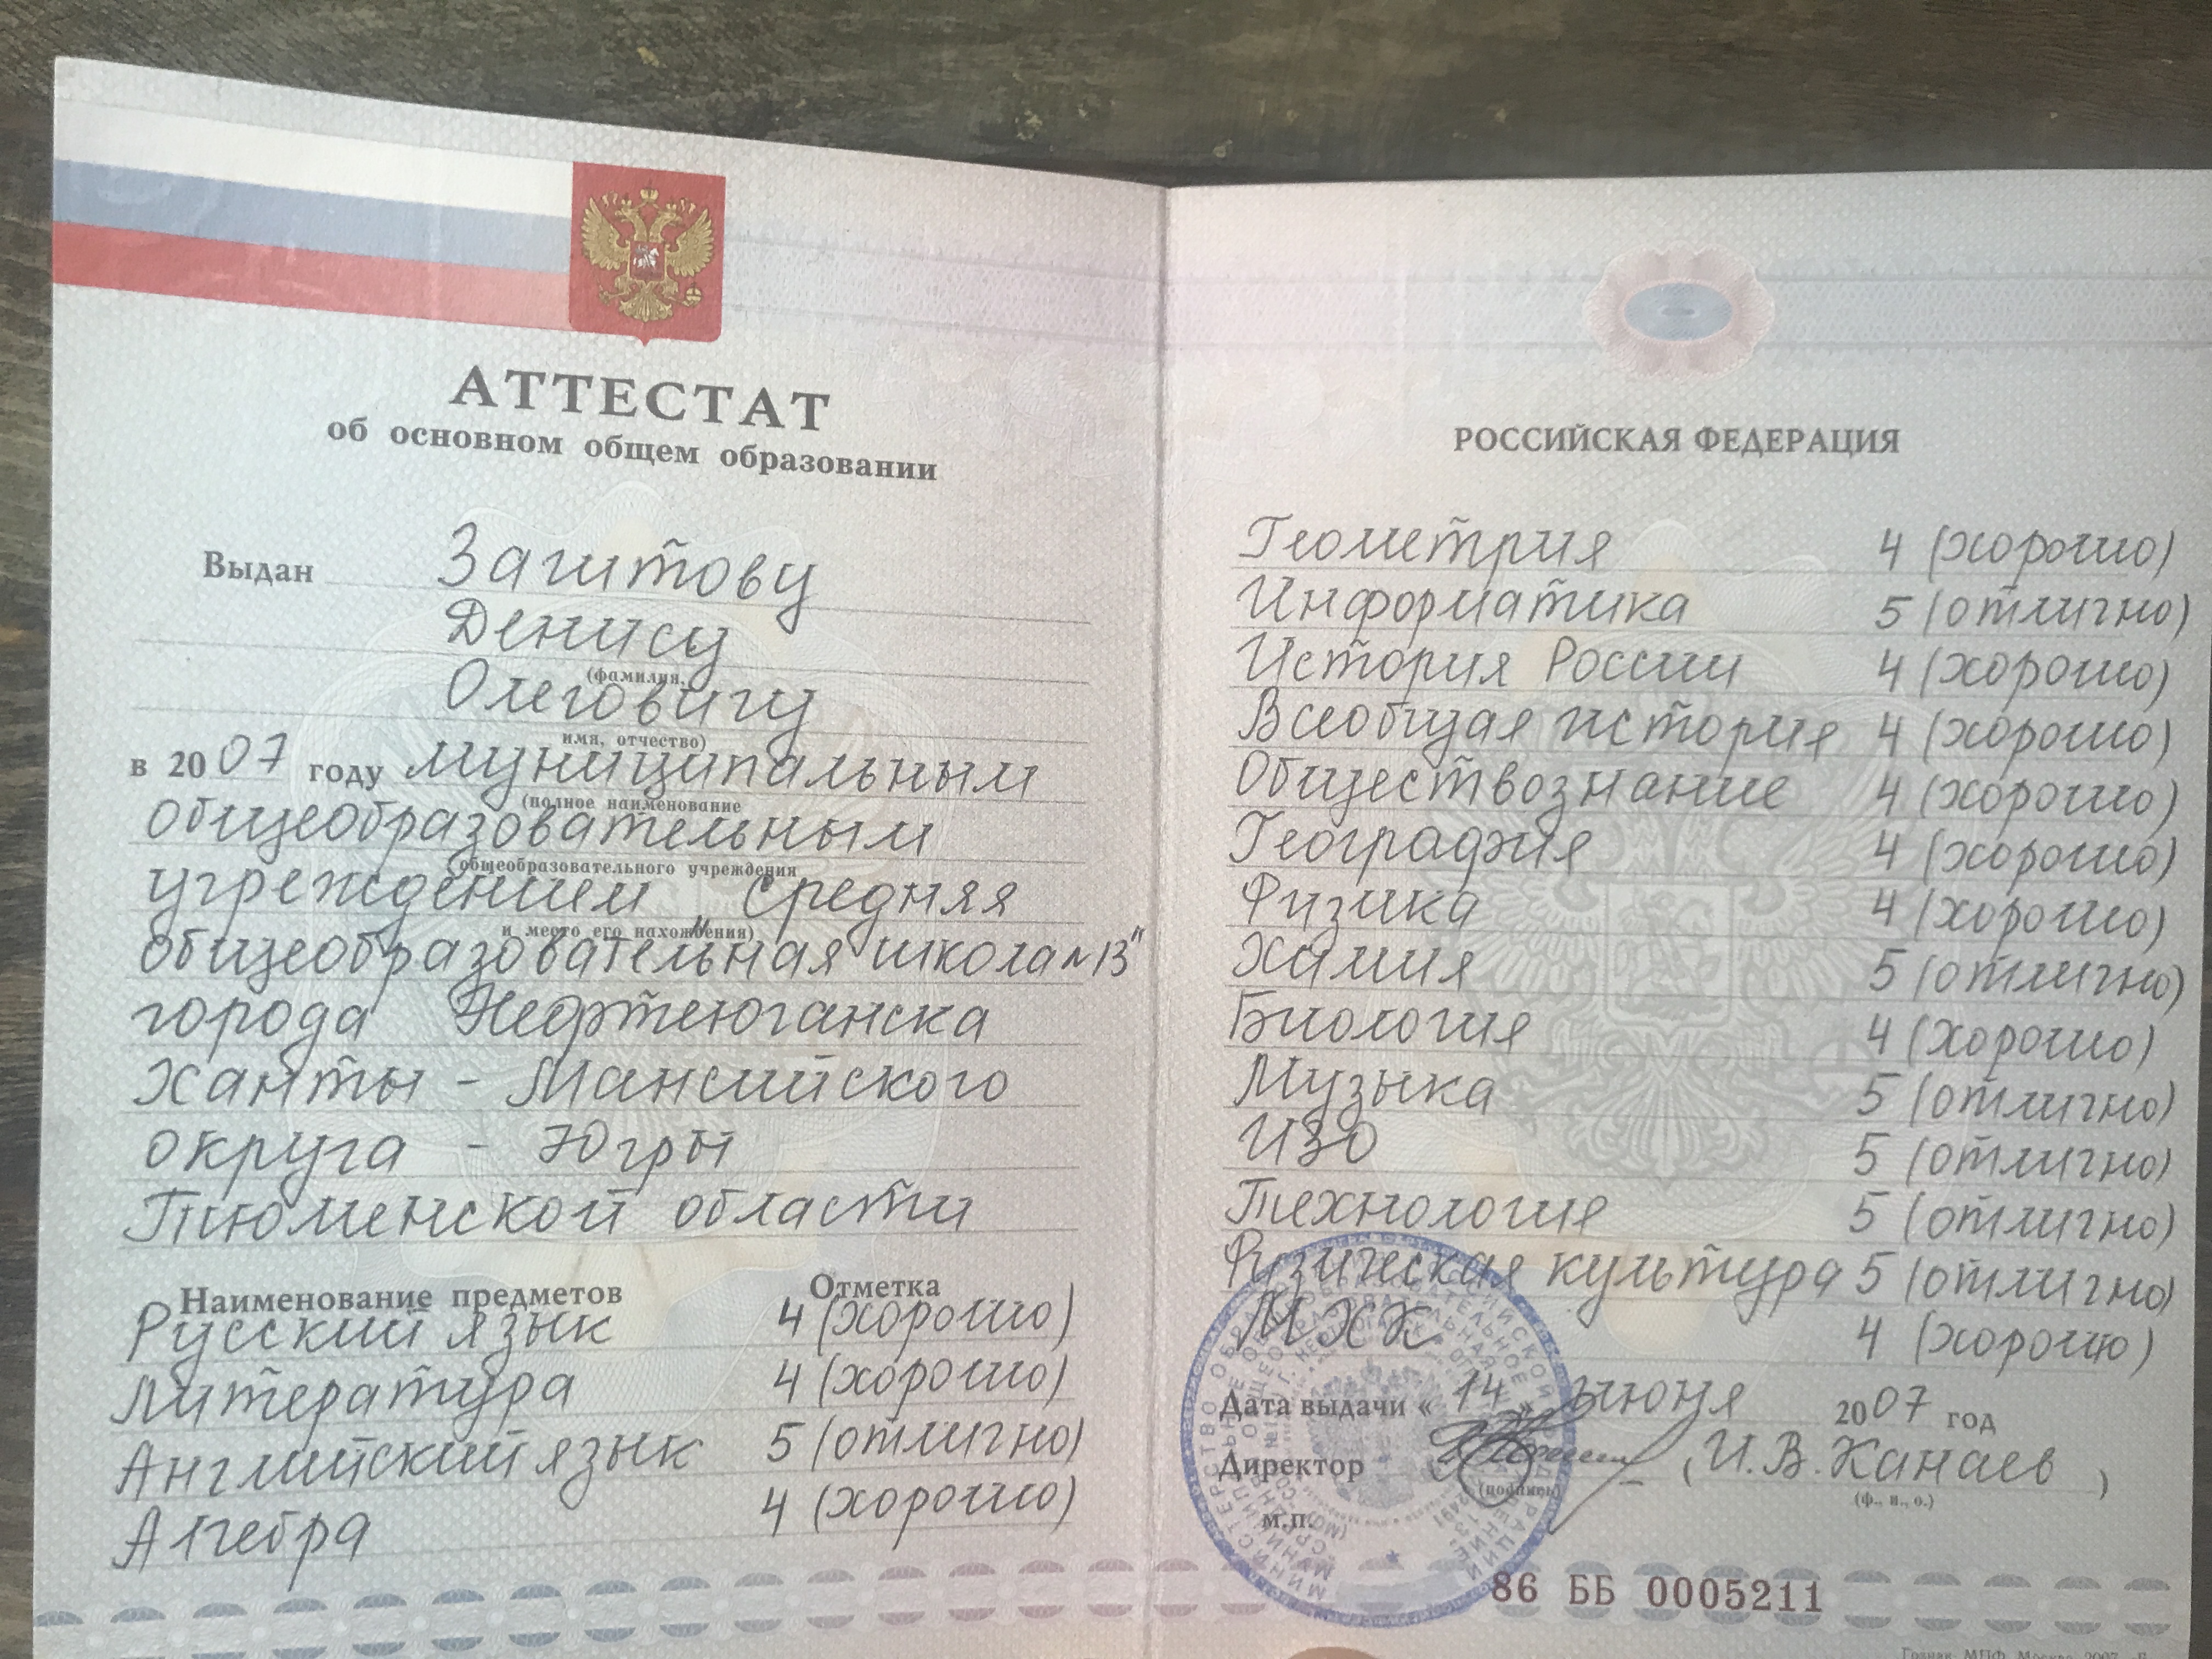 АТТЕСТАТ
об основном общем образовании
Выдан Загитову
Денису
(фамилия,
Олеговичу
имя, отчество)
в 2007 году муниципальным
(полное наименование
общеобразовательным
общеобразовательного учреждения
учреждением „ Средняя
и место его нахождения)
общеобразовательная школа № 13"
города Нефтеюганска
Ханты - Мансийского
округа - Югры
Тюменской области
Наименование предметов Отметка
Русский язык 4 (хорошо)
Литература 4 (хорошо)
Английский язык 5 (отлично)
Алгебра 4 (хорошо)
РОССИЙСКАЯ ФЕДЕРАЦИЯ
Геометрия 4 (хорошо)
Информатика 5 (отлично)
История России 4 (хорошо)
Всеобщая история 4 (хорошо)
Обществознание 4 (хорошо)
География 4 (хорошо)
Физика 4 (хорошо)
Химия 5 (отлично)
Биология 4 (хорошо)
Музыка 5 (отлично)
ИЗО 5 (отлично)
Технология 5 (отлично)
Физическая культура 5 (отлично)
МХК 4 (хорошо)
Дата выдачи « 14 » июня 2007 год
Директор (И.В. Канаев)
(подпись) (ф., и., о.)
М.П.
86 ББ 0005211